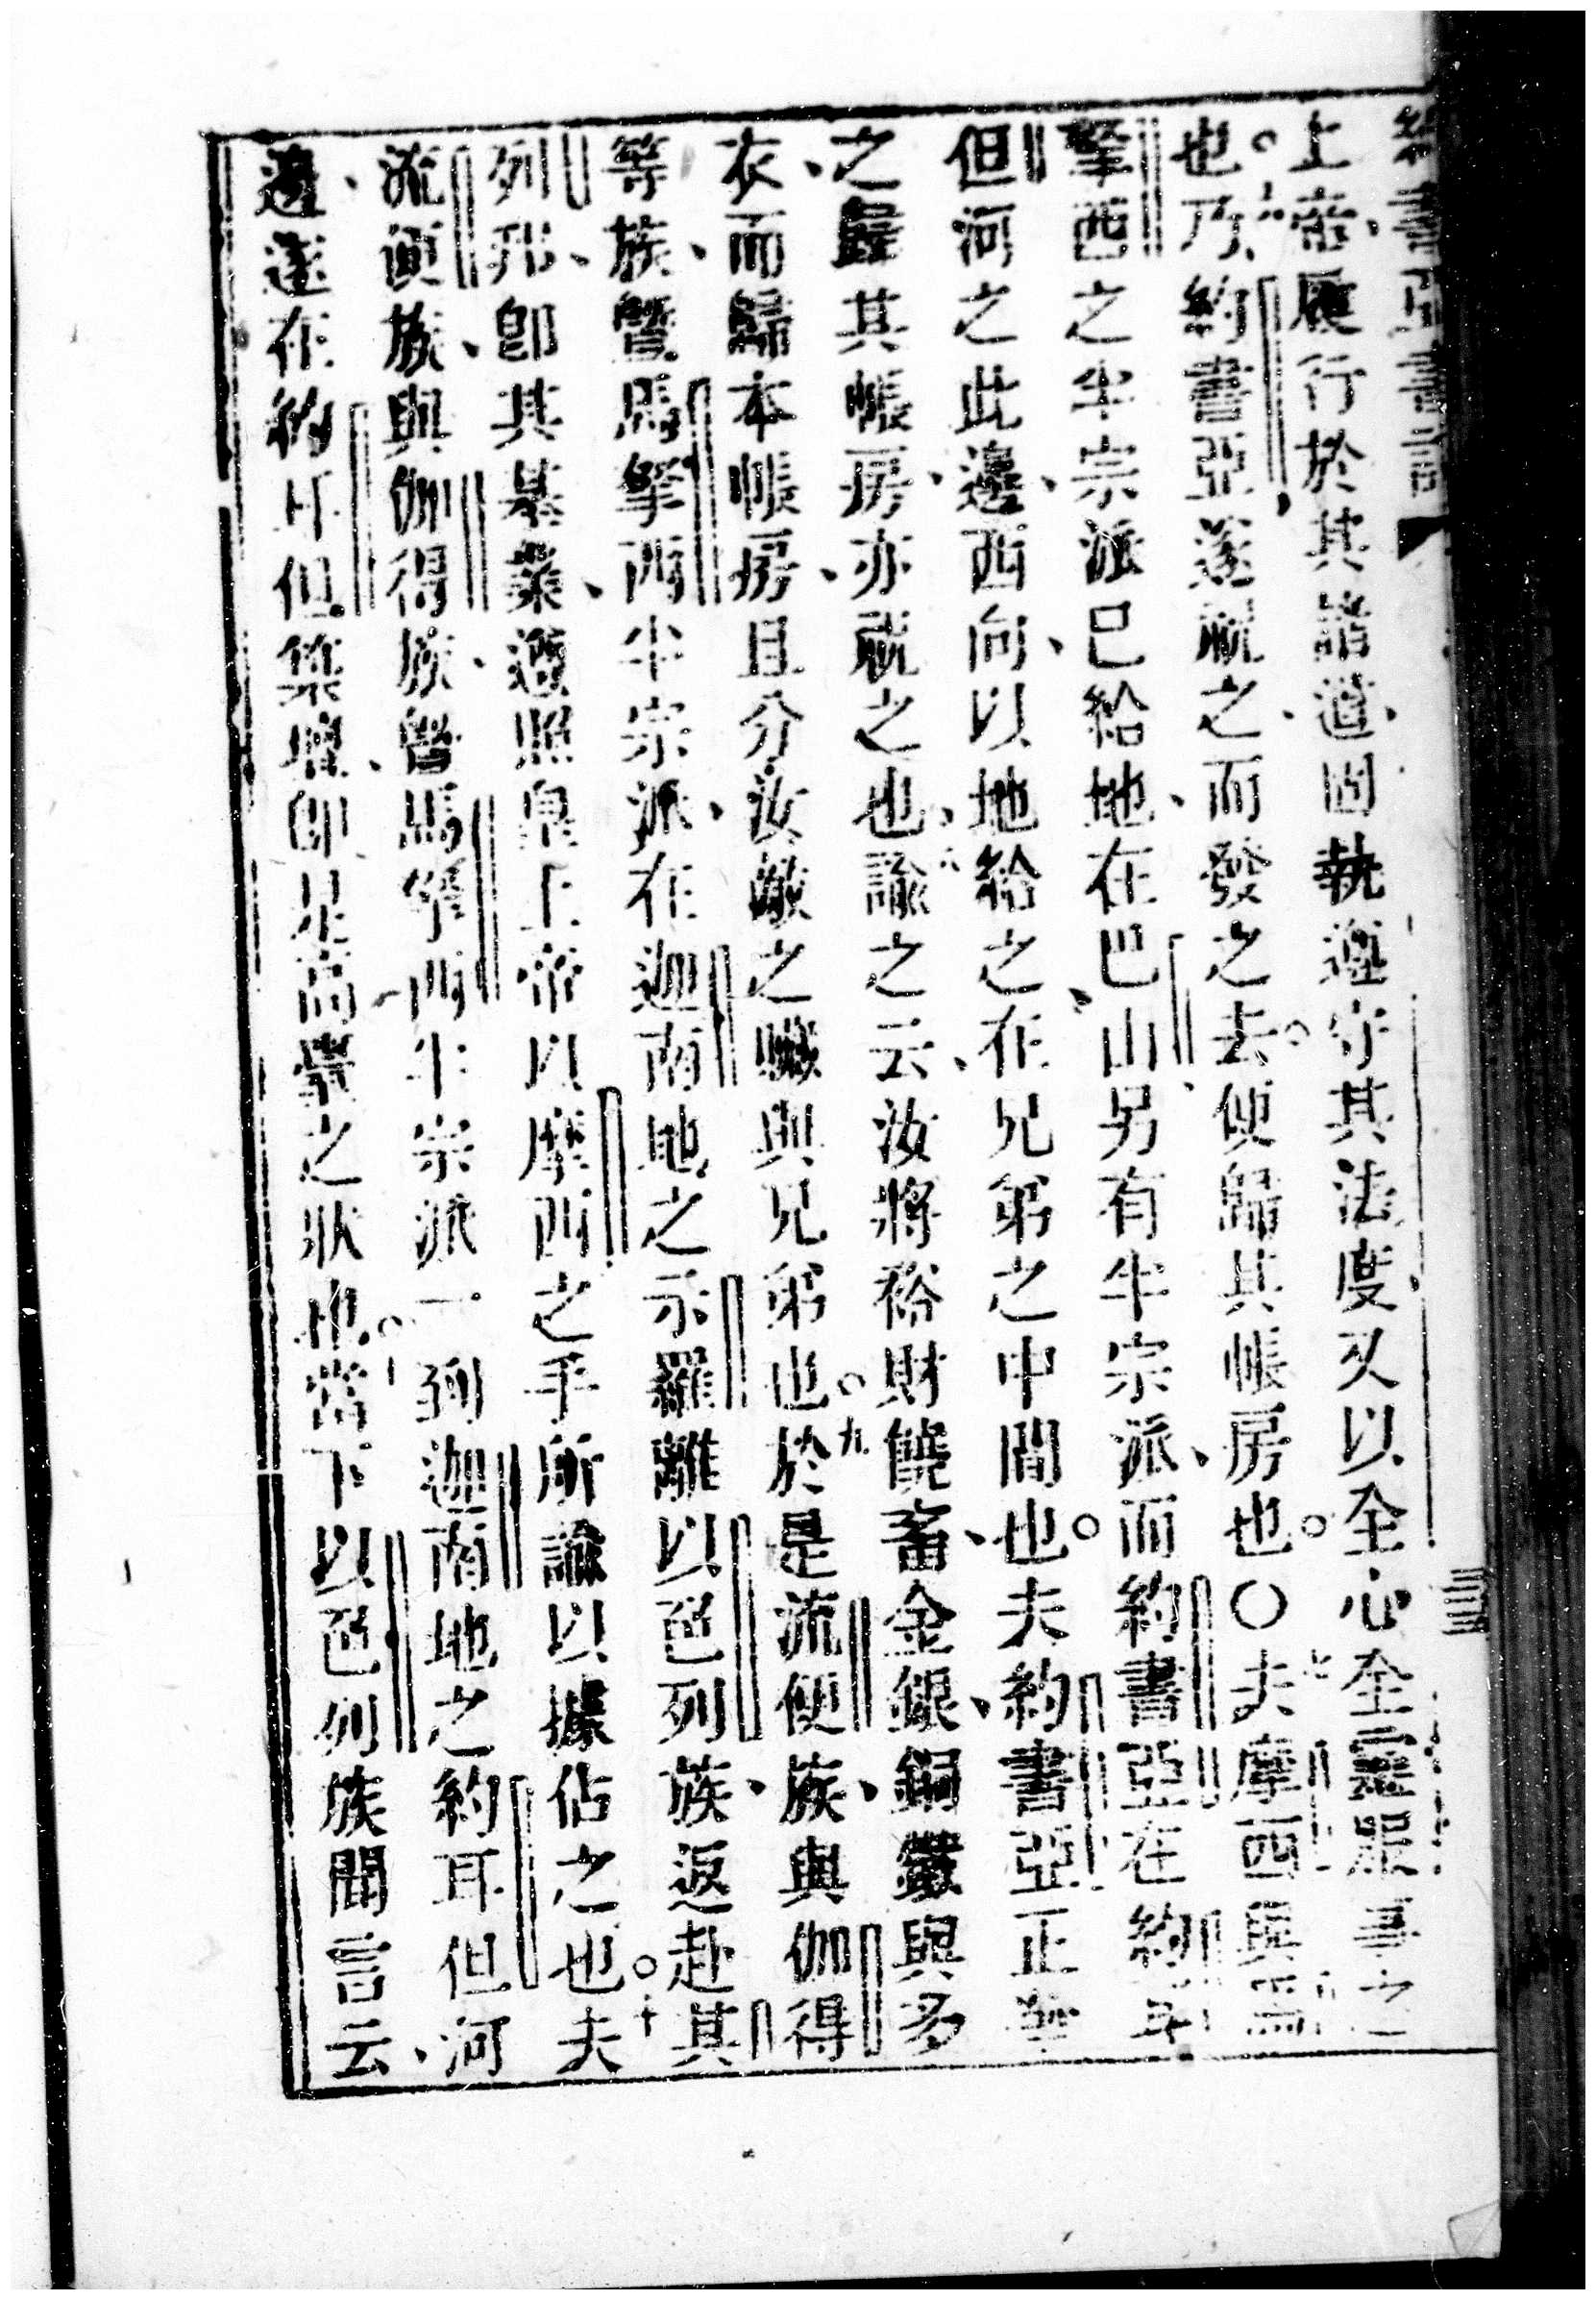 約書亞書
上帝、履行於其諸道、固執遵守其法度、又以全心全靈服事之
也。六乃、約書亞遂祝之、而發之去。便歸其帳房也。○七夫摩西與馬
拏西之半宗派已給地、在巴山、另有半宗派、而約書亞在約耳
但河之此邊、西向、以地給之、在兄弟之中間也。夫約書亞正發
之歸其帳房、亦祝之也、八諭之云、汝將裕財饒畜、金銀、銅鐵與多
衣、而歸本帳房、且分汝敵之贓與兄弟也。九於是流便族、與伽得
等族、暨馬拏西半宗派、在迦南地之示羅離以色列族、返赴其
列邦、卽其基業、遵照皇上帝以摩西之手所諭以據佔之也。十夫
流便族、與伽得族、暨馬拏西半宗派一到迦南地之約耳但河
邊、遂在約耳但築壇、卽是高臺之狀也。十一當下以色列族聞言云、